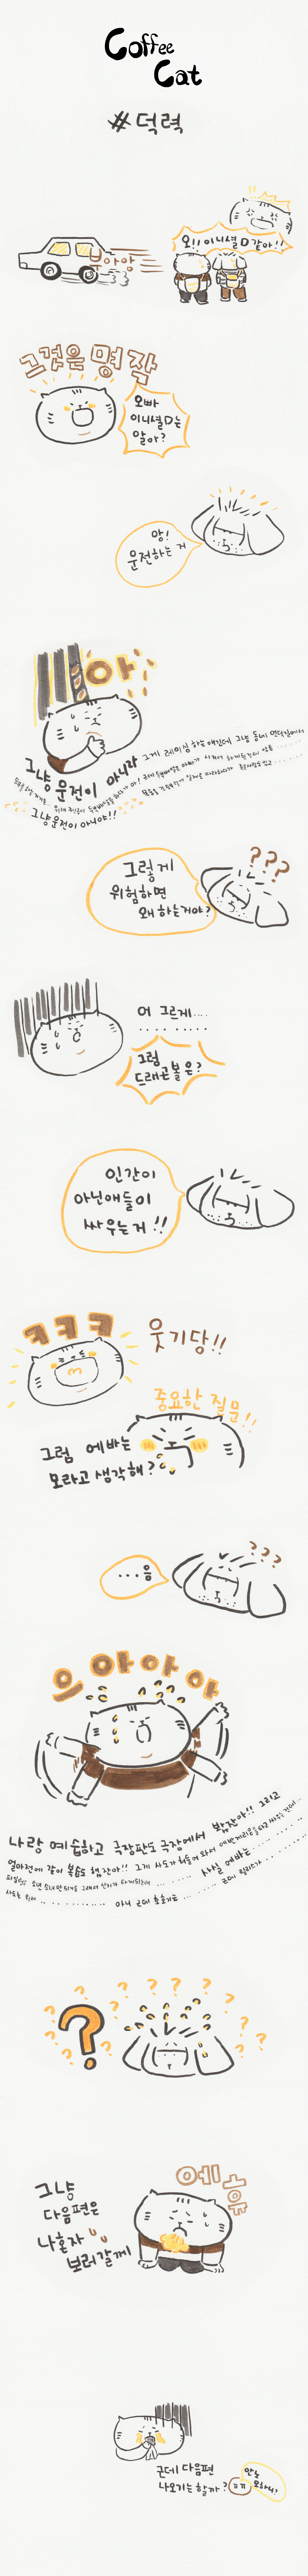 Coffee
Cat
#덕력
부아앙
오!! 이니셜D 같아!!
그것은 명작
오빠
이니셜D는
알아?
앙!
운전하는 거
아
그냥 운전이 아니라 그게 레이싱 하는 애긴데 그냥 동네 언덕길에서
그냥 운전이 아니야!!
???
그렇게
위험하면
왜 하는거야?
어 그르게....
그럼
드래곤볼은?
인간이
아닌애들이
싸우는거!!
ㅋㅋㅋ
웃기당!!
중요한 질문!!
그럼 에바는
모라고 생각해?
???
...음
으아아아아
나랑 예습하고 극장판도 극장에서 봤잖아!! 그리고
얼마전에 같이 복습도 했잖아!! 그게 사도가 쳐들어 와서 에반게리온을 타고 싸우는건데...
사실 에바는
아니 근데
?
? ? ? ? ? ?
에휴
그냥
다음편은
나혼자
보러갈께
근데 다음편
나오기는 할까?
ㄲㄲ
안노
모하니?